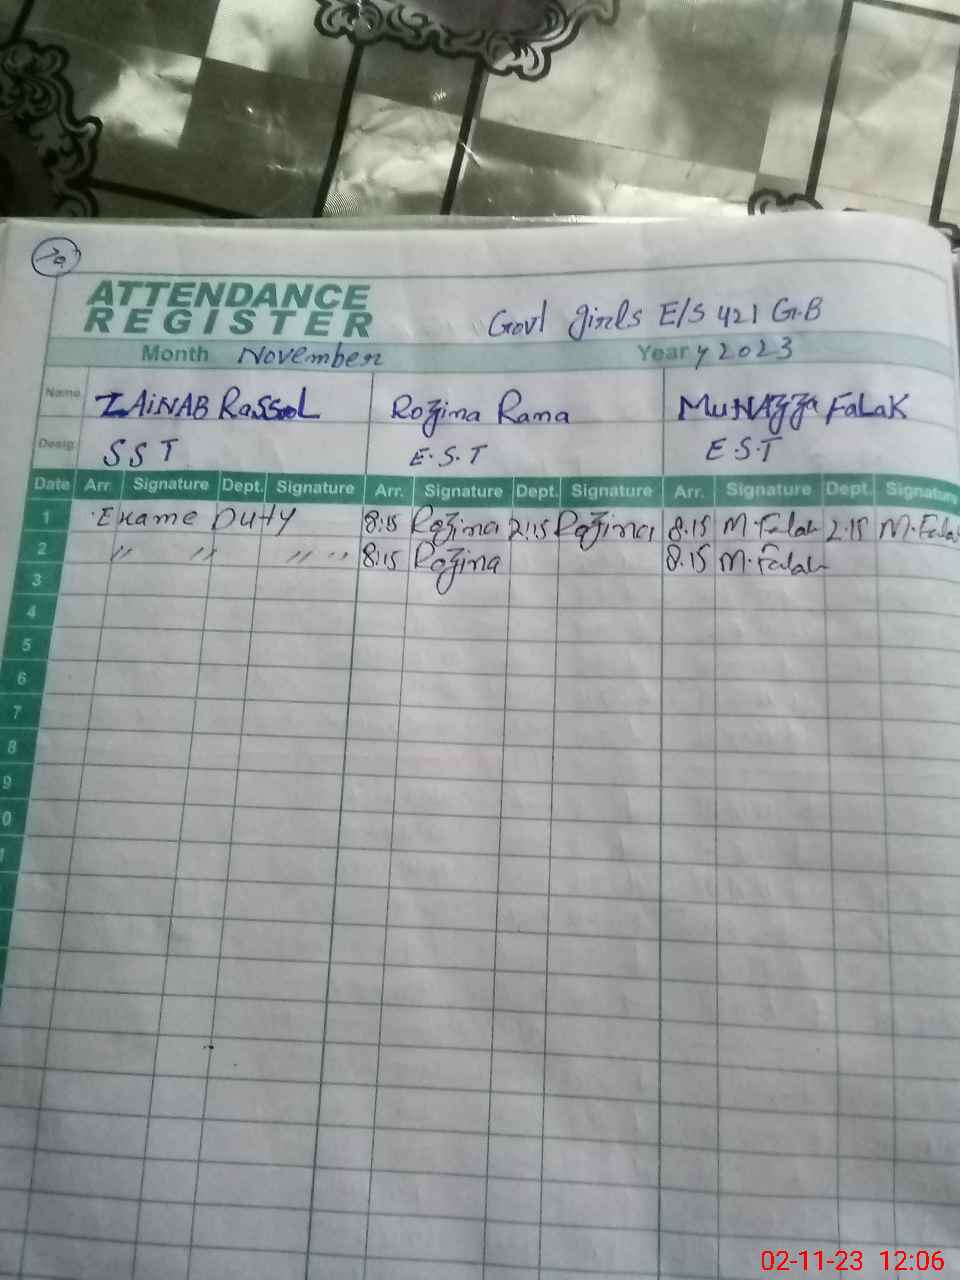 70
ATTENDANCE
REGISTER
Govt girls E/S 421 G.B
Month November Year 2023
Name ZAiNAB RassoL Rozina Rana MuNAzza FaLaK
Desig. SST E.S.T E.S.T
Date Arr. Signature Dept. Signature Arr. Signature Dept. Signature Arr. Signature Dept. Signature
1 Exame Duty 8:15 Rozina 2:15 Rozina 8.15 M.Falak 2.15 M.Fala
2 " " " " " 8:15 Rozina 8.15 M.Falak
3
4
5
6
7
8
9
0
1
02-11-23 12:06